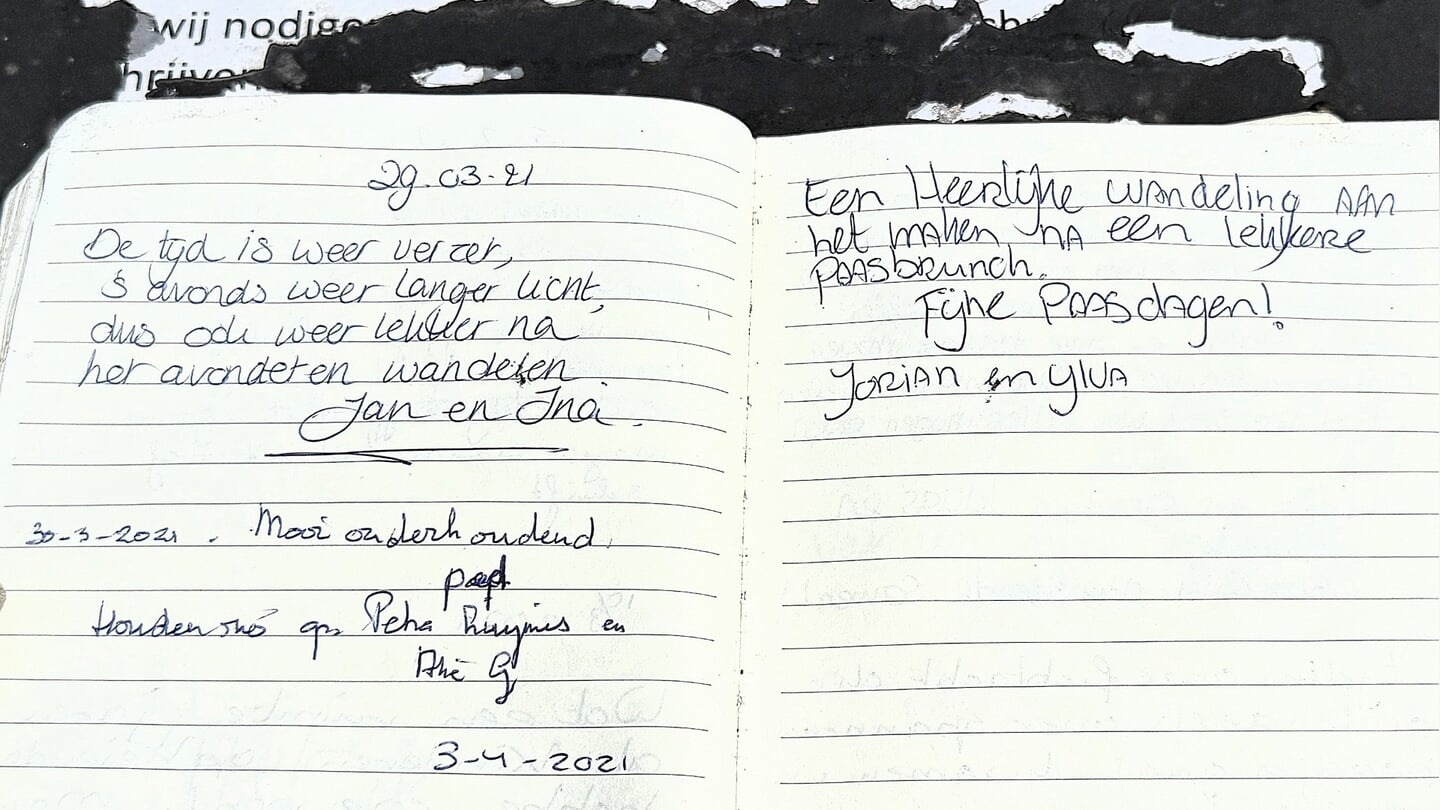 wij nodige
hrijve
29.03.21
De tijd is weer verzet,
's avonds weer langer licht,
dus ook weer lekker na
het avondeten wandelen.
Jan en Ina.
30-3-2021. Mooi onderhoudend
Petra en
G
3-4-2021
Een Heerlijke wandeling AAN
het maken, NA een lekkere
PAASbrunch.
Fijne PAASdagen!
Jorian en YlvA